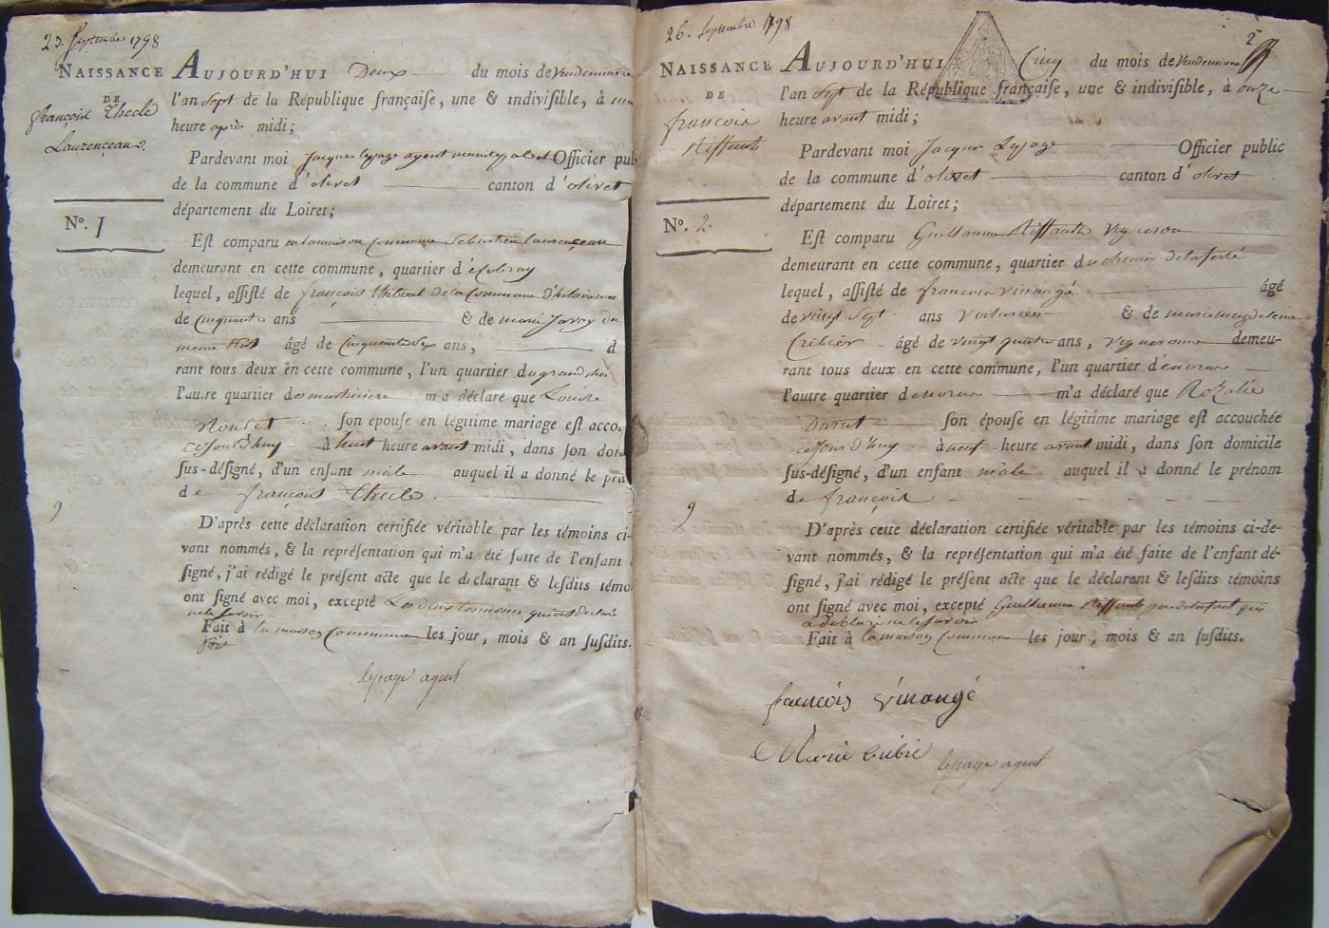 23. Septembre 1798
NAISSANCE
DE
françois Thecle
Laurenceau.
N°. 1
AUJOURD'HUI Deux du mois de Vendemiaire
l'an Sept de la République françaiſe, une & indiviſible, à une
heure après midi;
Pardevant moi Jacques lepage agent Officier pub
de la commune d'olivet canton d'olivet
département du Loiret;
Eſt comparu en la maison Commune Sebastien laurenceau
demeurant en cette commune, quartier d
lequel, aſſiſté de françois de la Commune
de Cinquante ans & de marie
âgé de Cinquante Six ans, d
rant tous deux en cette commune, l'un quartier du grand
l'autre quartier de m'a déclaré que Louise
ſon épouse en légitime mariage eſt acco
cejourd'huy à huit heure avant midi, dans ſon do
ſus-déſigné, d'un enfant mâle auquel il a donné le pré
de françois Thecle.
D'après cette déclaration certifiée véritable par les témoins ci-
vant nommés, & la repréſentation qui m'a été faite de l'enfant
ſigné, j'ai rédigé le préſent acte que le déclarant & leſdits témo
ont ſigné avec moi, excepté Les qui ont déclaré
ne le savoir
Fait à la maison Commune les jour, mois & an ſuſdits.
lepage agent
26. Septembre 1798
2
NAISSANCE
DE
françois
Riffault
N°. 2
AUJOURD'HUI Cinq du mois de Vendemiaire
l'an Sept de la République françaiſe, une & indiviſible, à onze
heure avant midi;
Pardevant moi Jacques Lepage Officier public
de la commune d'olivet canton d'olivet
département du Loiret;
Eſt comparu Guillaume Riffault Vigneron
demeurant en cette commune, quartier du chemin de la ferté
lequel, aſſiſté de francois vinangé âgé
de vingt Sept ans Voiturier & de marie magdelaine
Cribier âgé de vingt quatre ans, vigneronne demeu-
rant tous deux en cette commune, l'un quartier d
l'autre quartier d m'a déclaré que Rozalie
ſon épouse en légitime mariage eſt accouchée
cejourd'huy à neuf heure avant midi, dans ſon domicile
ſus-déſigné, d'un enfant mâle auquel il a donné le prénom
de françois
D'après cette déclaration certifiée véritable par les témoins ci-de-
vant nommés, & la repréſentation qui m'a été faite de l'enfant dé-
ſigné, j'ai rédigé le préſent acte que le déclarant & leſdits témoins
ont ſigné avec moi, excepté Guillaume Riffault
a déclaré ne le savoir
Fait à la maison Commune les jour, mois & an ſuſdits.
francois vinangé
Marie Cribié lepage agent